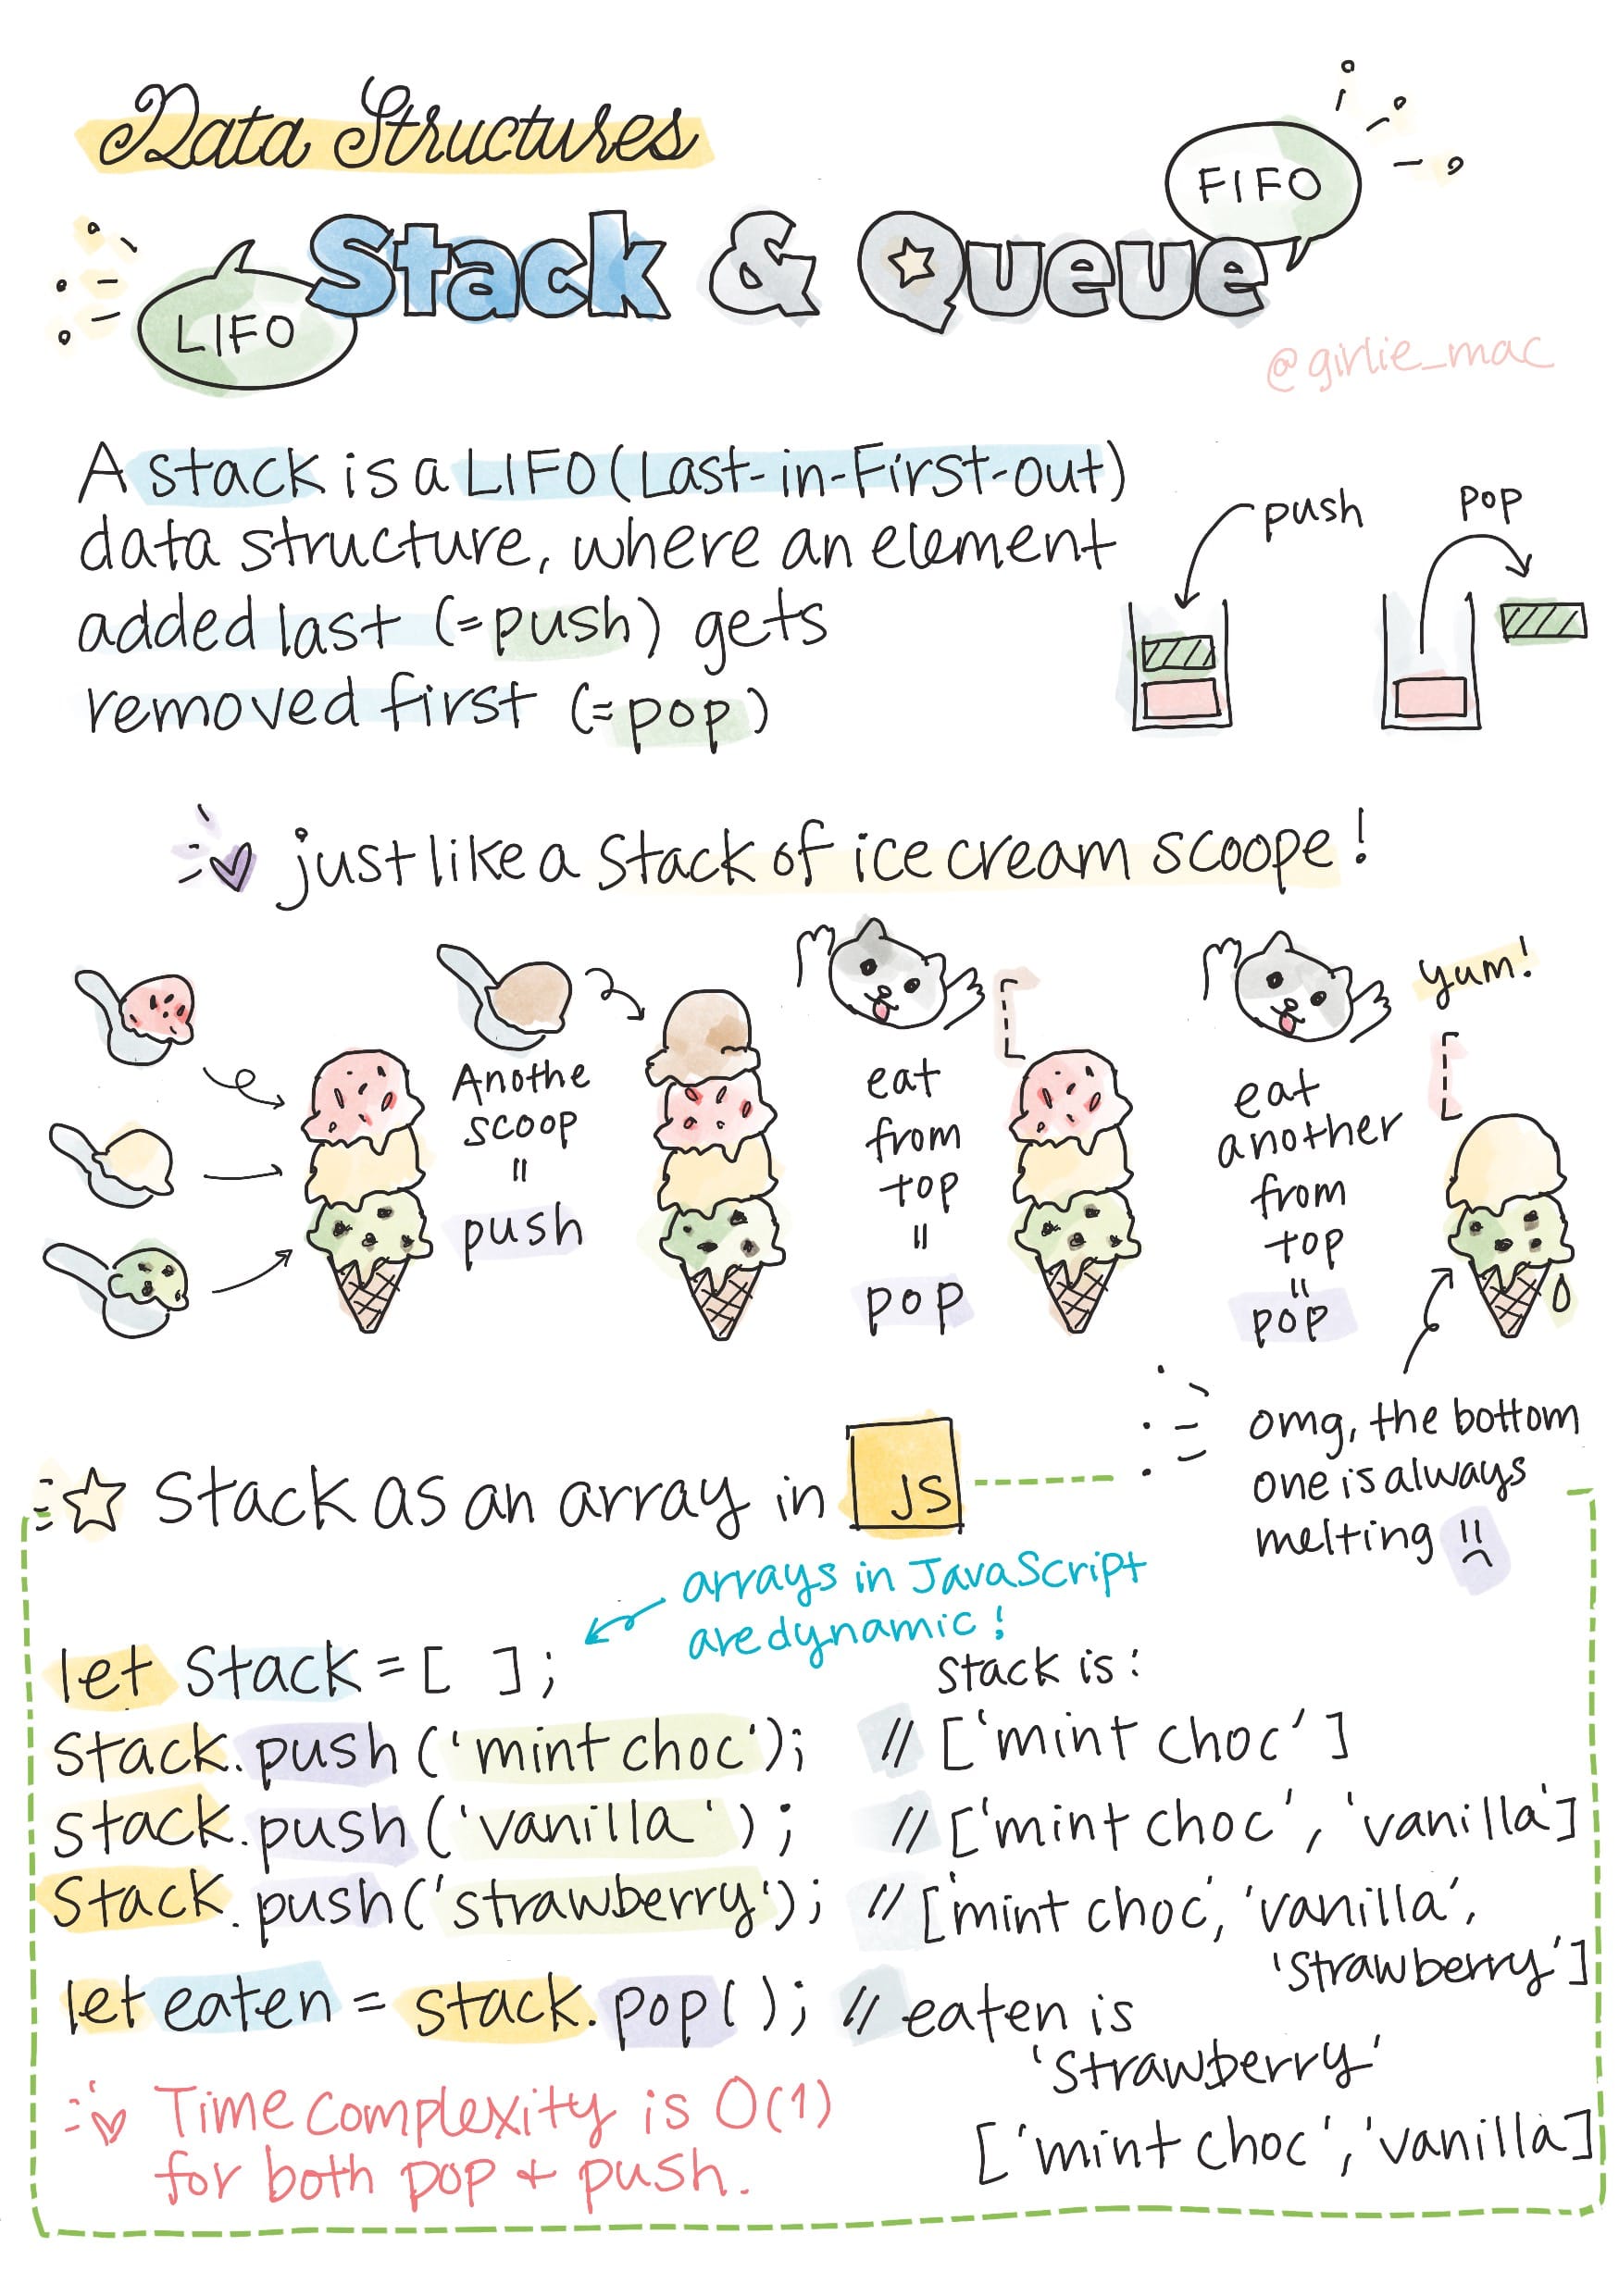 Data Structures
FIFO
Stack & Queue
LIFO
@girlie_mac
A stack is a LIFO (Last-in-First-out)
data structure, where an element
added last (=push) gets
removed first (=pop)
push
pop
just like a stack of ice cream scoope!
Anothe
scoop
=
push
eat
from
top
=
pop
eat
another
from
top
=
pop
yum!
omg, the bottom
one is always
melting
Stack as an array in JS
arrays in JavaScript
are dynamic!
let stack = [ ];
stack is:
stack.push('mint choc'); // ['mint choc']
stack.push('vanilla'); // ['mint choc', 'vanilla']
stack.push('strawberry'); // ['mint choc', 'vanilla',
'strawberry']
let eaten = stack.pop(); // eaten is
'strawberry'
['mint choc', 'vanilla]
Time complexity is O(1)
for both pop + push.